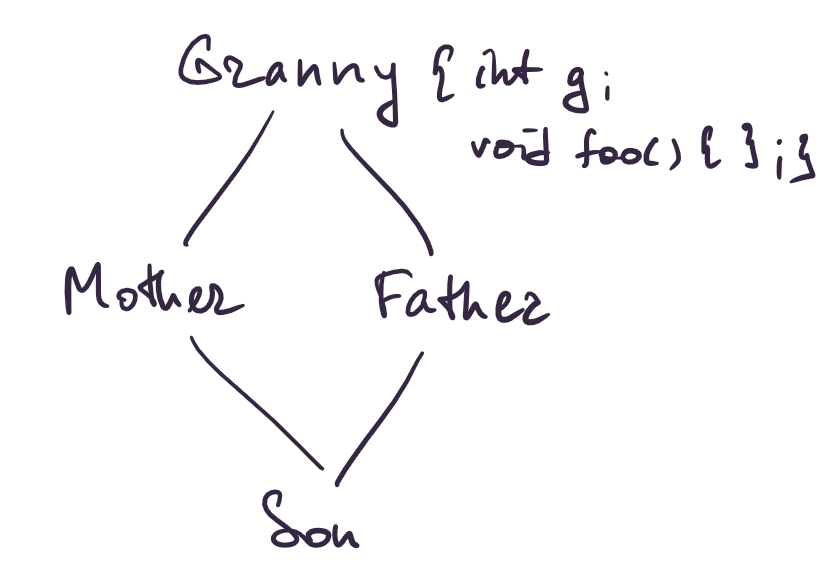 Granny { int g;
void foo() { } ; }
Mother Father
Son